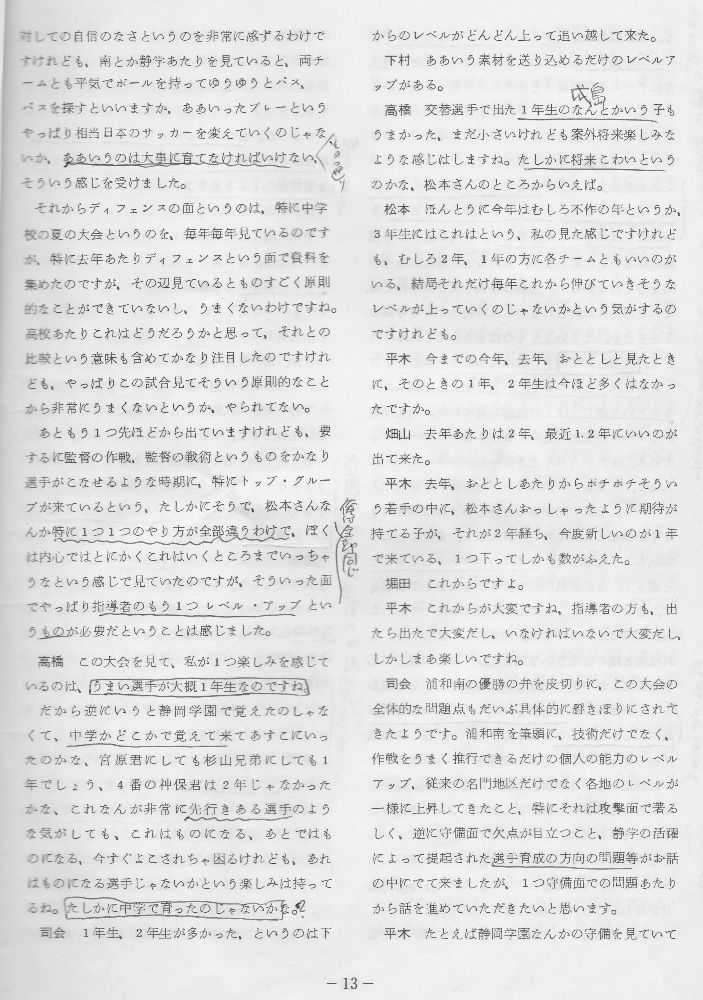 対しての自信のなさというのを非常に感ずるわけで
すけれども、南とか静学あたりを見ていると、両チ
ームとも平気でボールを持ってゆうゆうとパス、
パスを探すといいますか、ああいったプレーという
やっぱり相当日本のサッカーを変えていくのじゃな
いか、ああいうのは大事に育てなければいけない、
そういう感じを受けました。
それからディフェンスの面というのは、特に中学
校の夏の大会というのを、毎年毎年見ているのです
が、特に去年あたりディフェンスという面で資料を
集めたのですが、その辺見ているとものすごく原則
的なことができていないし、うまくないわけですね。
高校あたりこれはどうだろうかと思って、それとの
比較という意味も含めてかなり注目したのですけれ
ども、やっぱりこの試合見てそういう原則的なこと
から非常にうまくないというか、やられてない。
あともう1つ先ほどから出ていますけれども、要
するに監督の作戦、監督の戦術というものをかなり
選手がこなせるような時期に、特にトップ・グルー
プが来ているという、たしかにそうで、松本さんな
んか特に1つ1つのやり方が全部違うわけで、ぼく
は内心ではとにかくこれはいくところまでいっちゃ
うなという感じで見ていたのですが、そういった面
でやっぱり指導者のもう1つレベル・アップとい
うものが必要だということは感じました。
高橋 この大会を見て、私が1つ楽しみを感じて
いるのは、うまい選手が大概1年生なのですね。
だから逆にいうと静岡学園で覚えたのじゃな
くて、中学かどこかで覚えて来てあすこにいっ
たのかな、宮原君にしても杉山兄弟にしても1
年でしょう、4番の神保君は2年じゃなかった
かな、これなんが非常に先行きある選手のよう
な気がしても、これはものになる、あとではも
のになる、今すぐよこされちゃ困るけれども、あれ
はものになる選手じゃないかという楽しみは持って
るね。たしかに中学で育ったのじゃないかな?
司会 1年生、2年生が多かった、というのは下
俺は全部同じ
からのレベルがどんどん上って追い越して来た。
下村 ああいう素材を送り込めるだけのレベルア
ップがある。
高橋 交替選手で出た1年生のなんとかいう子も
うまかった、まだ小さいけれども案外将来楽しみな
ような感じはしますね。たしかに将来こわいという
のかな、松本さんのところからいえば。
松本 ほんとうに今年はむしろ不作の年というか、
3年生にはこれはという、私の見た感じですけれど
も、むしろ2年、1年の方に各チームともいいのが
いる、結局それだけ毎年これから伸びていきそうな
レベルが上っていくのじゃないかという気がするの
ですけれども。
平木 今までの今年、去年、おととしと見たとき
に、そのときの1年、2年生は今ほど多くはなかっ
たですか。
畑山 去年あたりは2年、最近1.2年にいいのが
出て来た。
平木 去年、おととしあたりからボチボチそうい
う若手の中に、松本さんおっしゃったように期待が
持てる子が、それが2年経ち、今度新しいのが1年
で来ている、1つ下ってしかも数がふえた。
堀田 これからですよ。
平木 これからが大変ですね、指導者の方も、出
たら出たで大変だし、いなければいないで大変だし、
しかしまあ楽しいですね。
司会 浦和南の優勝の弁を皮切りに、この大会の
全体的な問題点もだいぶ具体的に浮きぼりにされて
きたようです。浦和南を筆頭に、技術だけでなく、
作戦をうまく推行できるだけの個人の能力のレベル
アップ、従来の名門地区だけでなく各地のレベルが
一様に上昇してきたこと、特にそれは攻撃面で著る
しく、逆に守備面で欠点が目立つこと、静学の活躍
によって提起された選手育成の方向の問題等がお話
の中にでて来ましたが、1つ守備面での問題あたり
から話を進めていただきたいと思います。
平木 たとえば静岡学園なんかの守備を見ていて
－13－